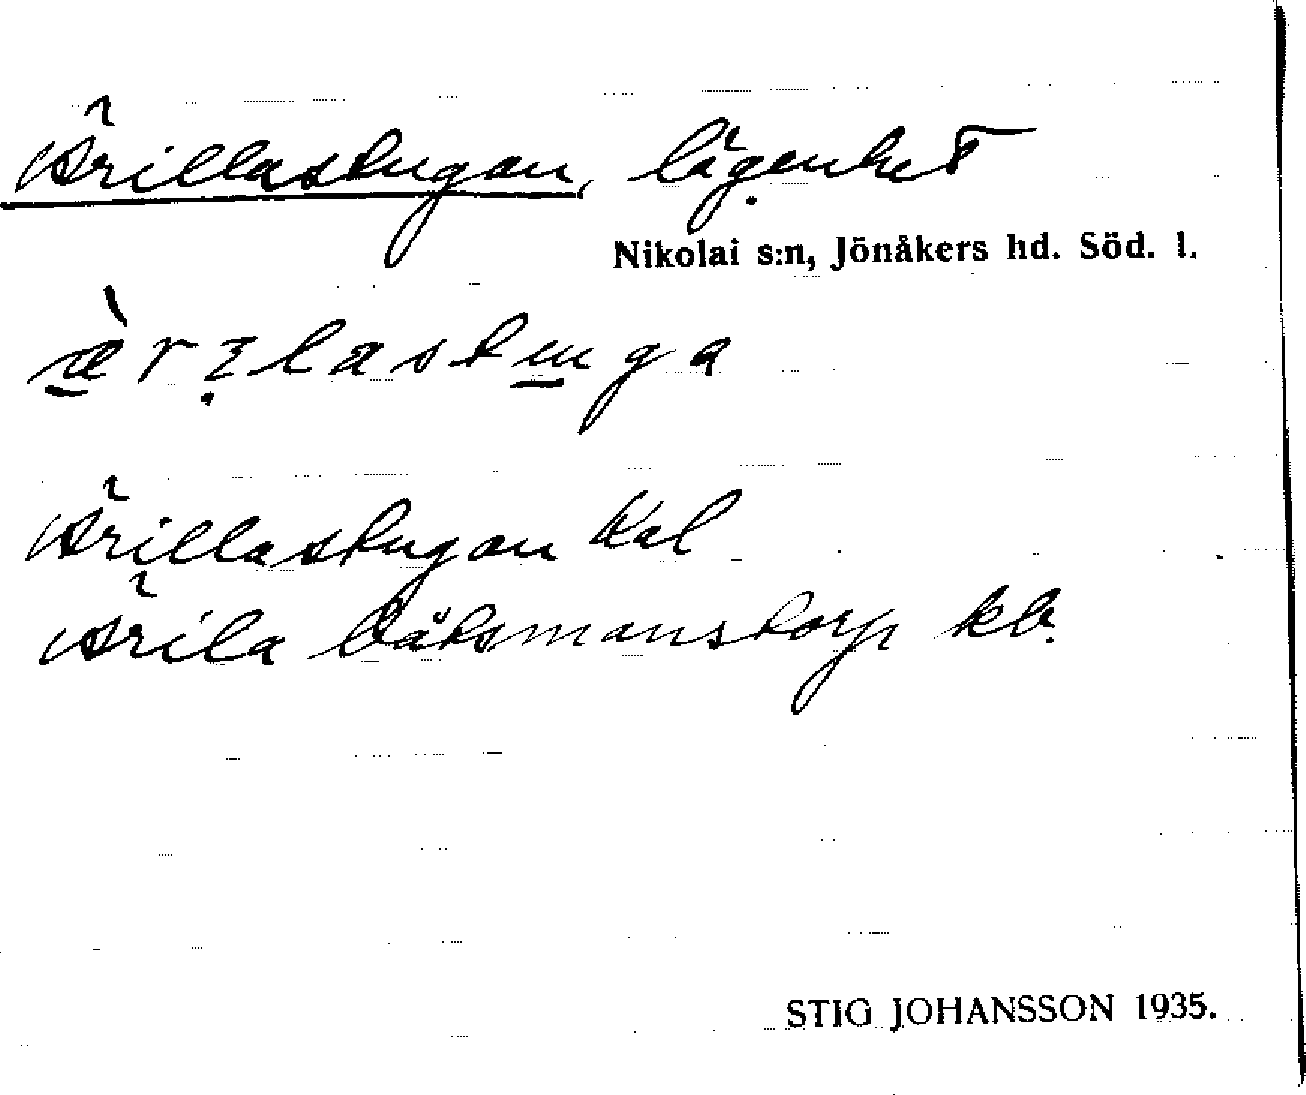 Ärillastugan, lägenhet
Nikolai s:n, Jönåkers hd. Söd. l.
Ärillastugan Kal
Ärila båtsmanstorp kb.
STIG JOHANSSON 1935.